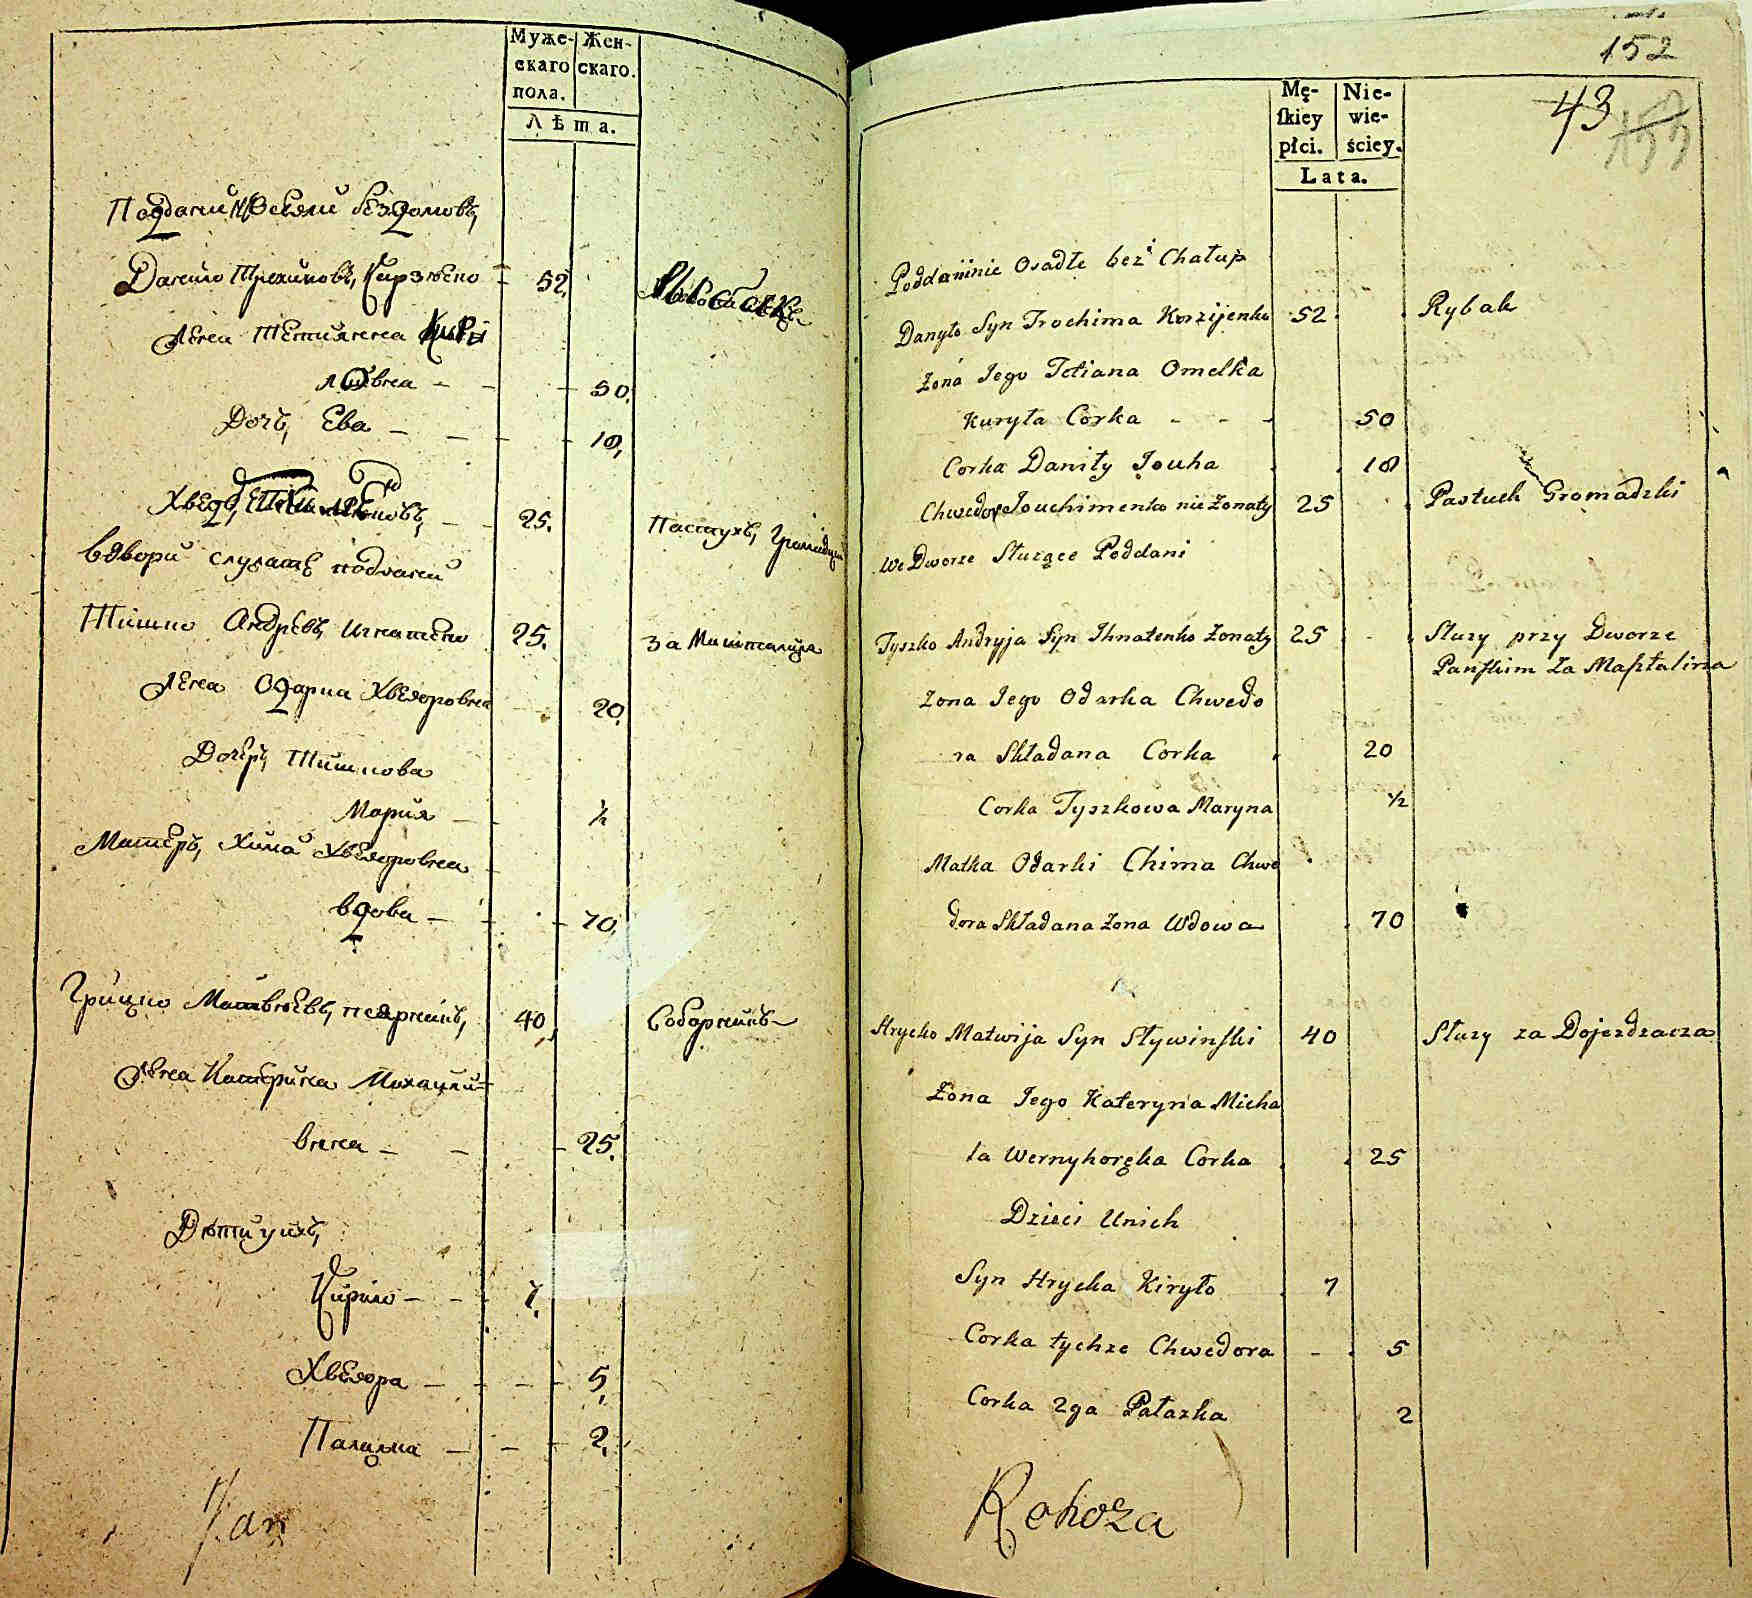 Муже- Жен-
скаго скаго.
пола.
Лѣта.
Данило Трохимовъ, 52
Жена Тетияна
ловна - - 50
Доч, Ева - - 18
25
Пастухъ,
вдвори служатъ подданий
Тишко Андрѣевъ Игнатенко 25. За Машталира
Жена Одарка Хведоровна 20
Дочеръ Тишкова
Мария - ½
Матерь, Хима Хведоровна
вдова - 70
Грицко Матвѣевъ, 40
Жена Катерина Михайли=
вна - - 25
Дѣти у ихъ,
Кирило - - 7
Хведора - - - 5
Палажка - - - 2
Jan
152
43
Mę- Nie-
skiey wie-
płci. ściey.
Lata.
Poddannie Osadłe bez Chałup
Danyło Syn Trochima Korzijenko 52 Rybak
Żona Jego Tetiana Omelka
Kuryła Corka - - - 50
Corka Daniły Jouha 18
Chwedor Jouchimenko nie Żonaty 25 Pastuch Gromadzki
We Dworze Służące Poddani
Tyszko Andryja Syn Ihnatenko Żonaty 25 Służy przy Dworze
Pańskim za Masztalirza
Żona Jego Odarka Chwedo
ra Składana Corka 20
Corka Tyszkowa Maryna ½
Matka Odarki Chima Chwe
dora Składana Żona Wdowa 70
Hrycko Matwija Syn Stywinski 40 Służy za Dojezdzacza
Żona Jego Kateryna Micha
ła Wernyhoręka Corka 25
Dzieci Unich
Syn Hrycka Kiryło 7
Corka tychze Chwedora - 5
Corka 2ga Pałazka 2
Rohoza